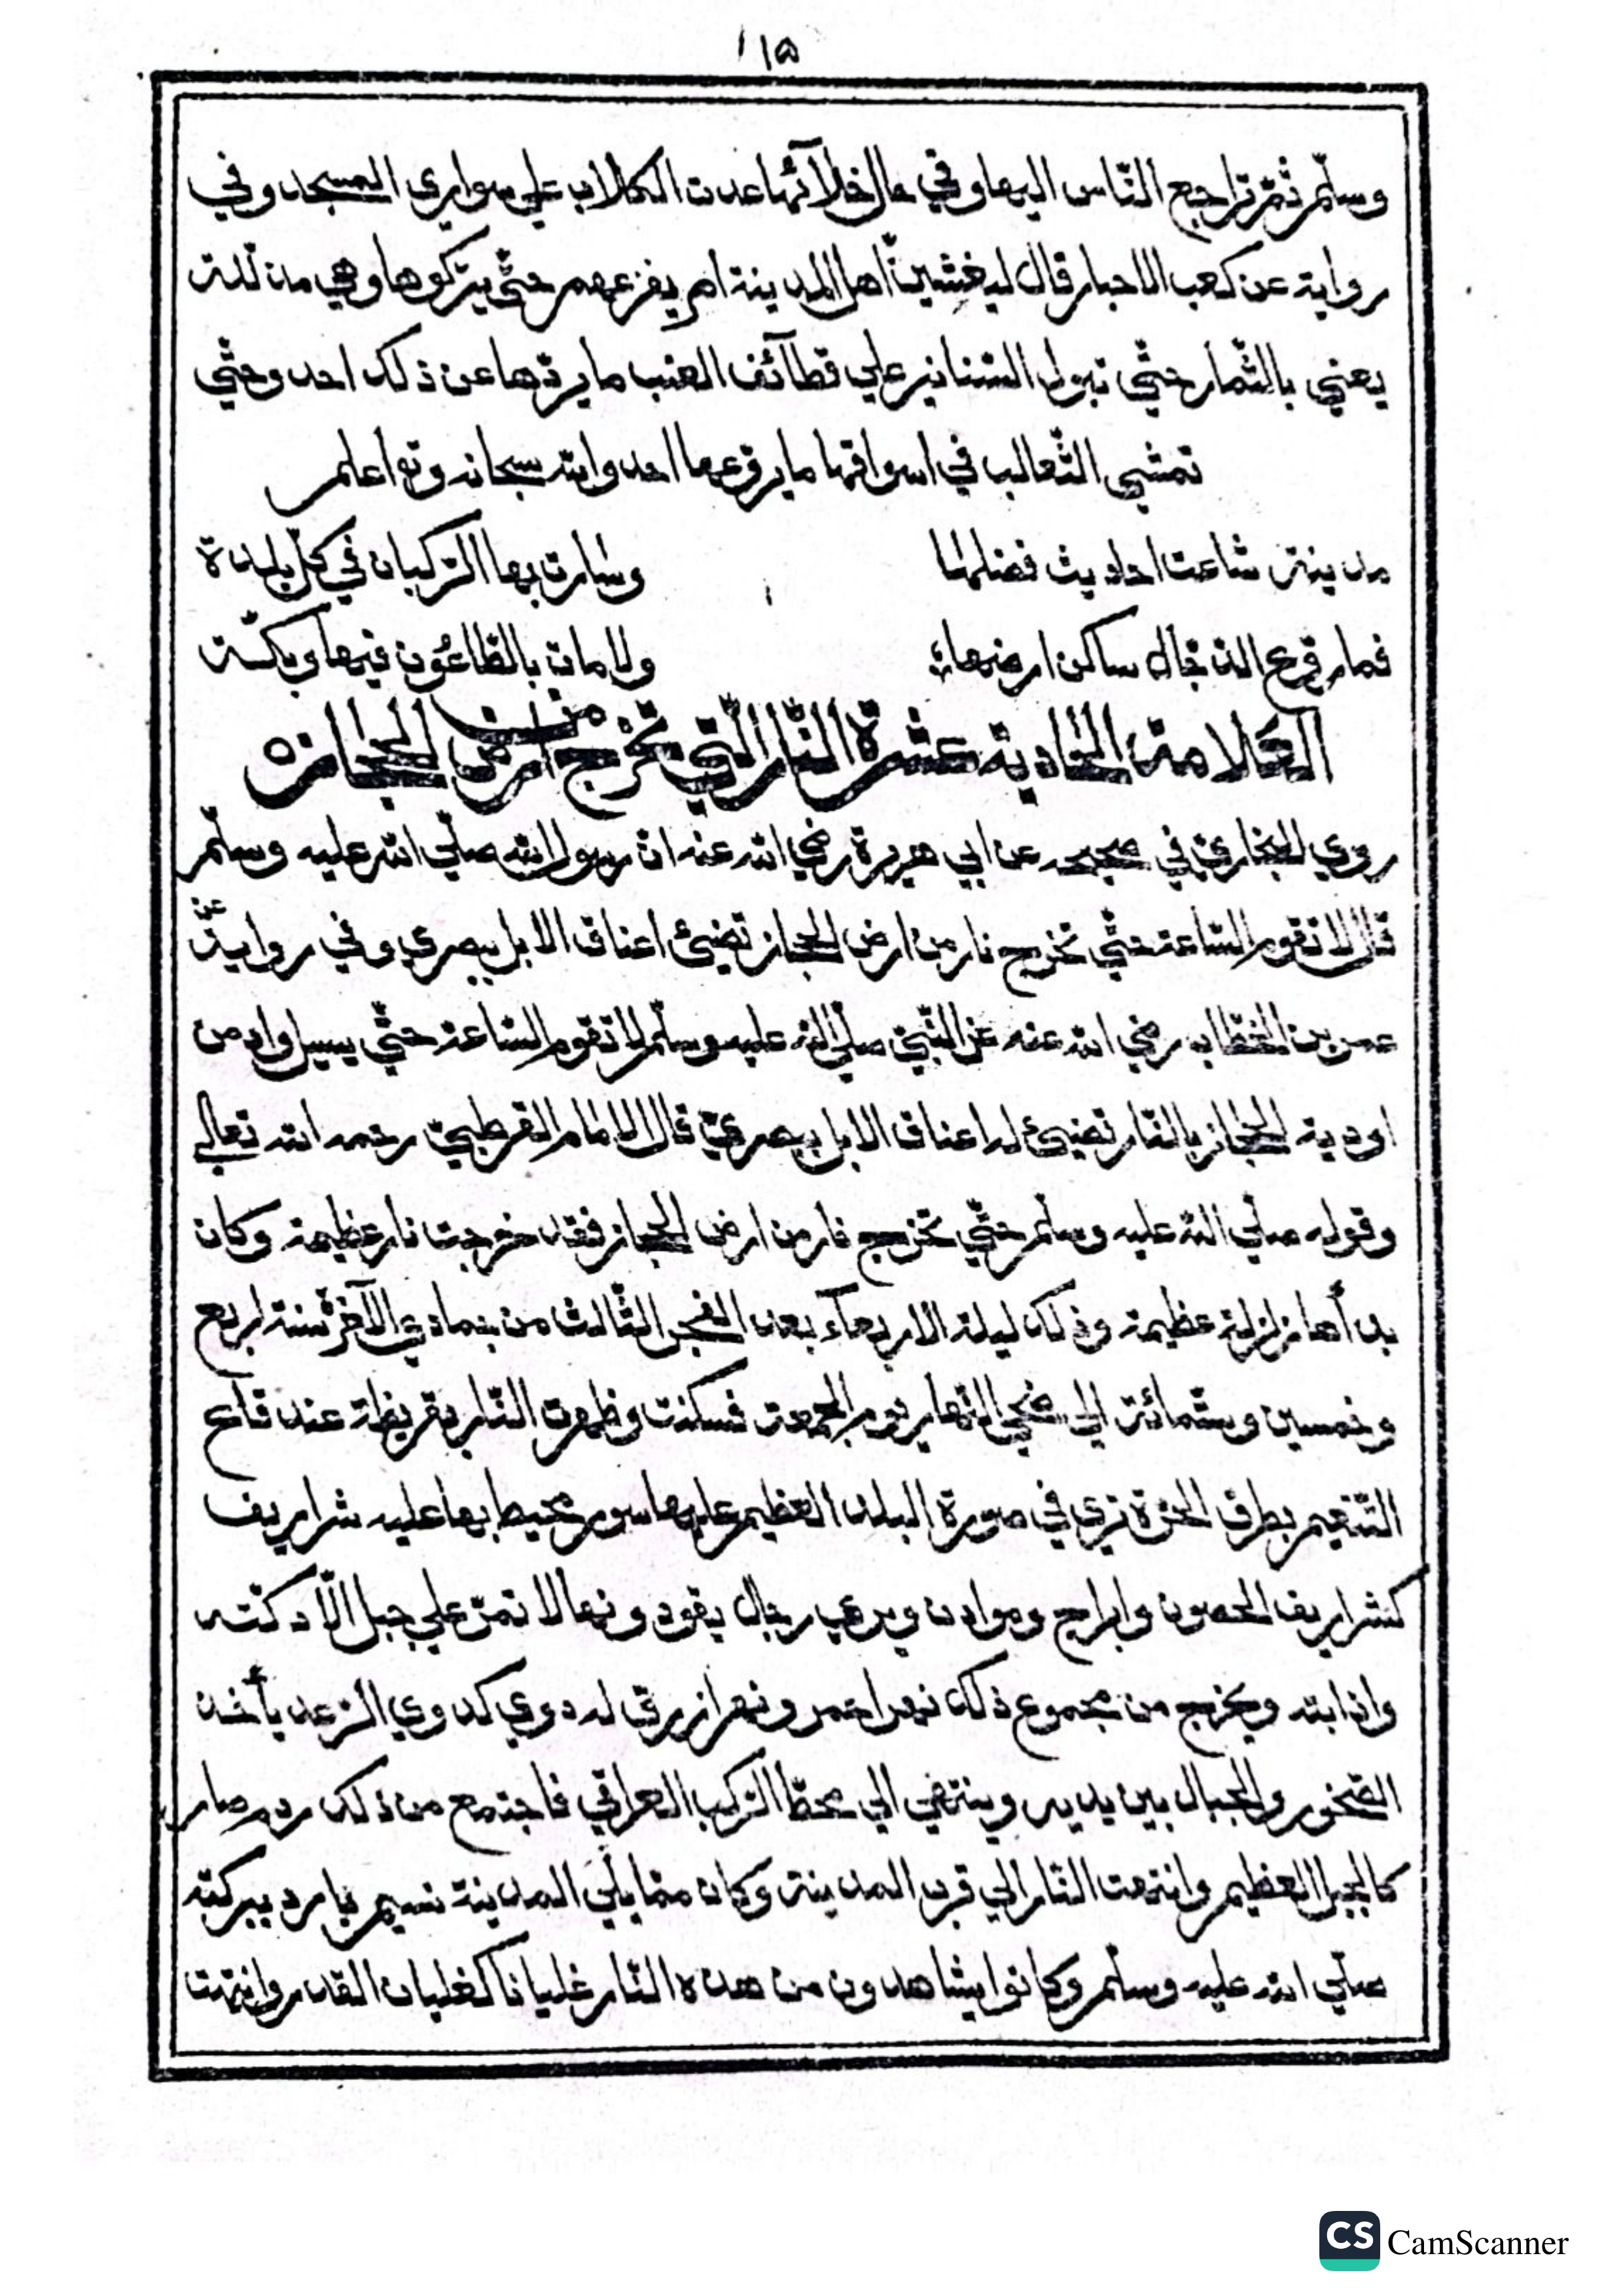 ١٥
وسلّم ثمّ تراجع النّاس اليها وفي حال خلآئها عدت الكلاب علي سواري المسجد وفي
رواية عن كعب الاحبار قال ليغشينّ اهل المدينة امر يفزعهم حتّي يتركوها وهي مذللة
يعني بالثّمار حتّي تبول السّنانير علي قطآئف العنب ما يردّها عن ذلك احد وحتّي
تمشي الثّعالب في اسواقها ما يروّعها احد والله سبحانه وتعا اعلم
مدينة شاعت احاديث فضلها
وسارت بها الرّكبان في كلّ بلدة
فما روّع الدّجال ساكن ارضها
ولا مات بالطّاعُون فيها وبكّة
العلامة الحادية عشرة النّار الّتي تخرج من ارض الحجاز
روي البخاريّ في صحيحه عن ابي هريرة رضي الله عنه انّ رسول الله صلّي الله عليه وسلّم
قال لا تقوم السّاعة حتّي تخرج نار من ارض الحجاز تضيئ اعناق الابل ببصري وفي رواية عن
عمر بن الخطّاب رضي الله عنه عن النّبيّ صلّي الله عليه وسلّم لا تقوم السّاعة حتّي يسيل واد من
اودية الحجاز بالنّار تضيئ له اعناق الابل ببصري قال الامام القرطبيّ رحمه الله تعالي
وقوله صلّي الله عليه وسلّم حتّي تخرج نار من ارض الحجاز فقد خرجت نار عظيمة وكان
بدأها زلزلة عظيمة وذلك ليلة الاربعآء بعد الفجر الثّالث من جمادي الآخرة سنة اربع
وخمسين وستّمائة الي ضحي النّهار يوم الجمعة فسكنت وظهرت النّار بقريظة عند قاع
التّنعيم بطرف الحرّة تري في صورة البلد العظيم عليها سور محيط بها عليه شراريف
كشراريف الحصون وابراج وموادن ويري رجال يقودونها لا تمرّ علي جبل الّا دكّته
واذابته ويخرج من مجموع ذلك نهر احمر ونهر ازرق له دوي كدوي الرّعد يأخذ
الصّخور والجبال بين يديه وينتهي الي محطّ الرّكب العراقي فاجتمع من ذلك ردم صار
كالجبل العظيم وانتهت النّار الي قرب المدينة وكان ممّا يلي المدينة نسيم بارد ببركته
صلّي الله عليه وسلّم وكانوا يشاهدون من هذه النّار غليانا كغليان القدر وانتهت
CS CamScanner